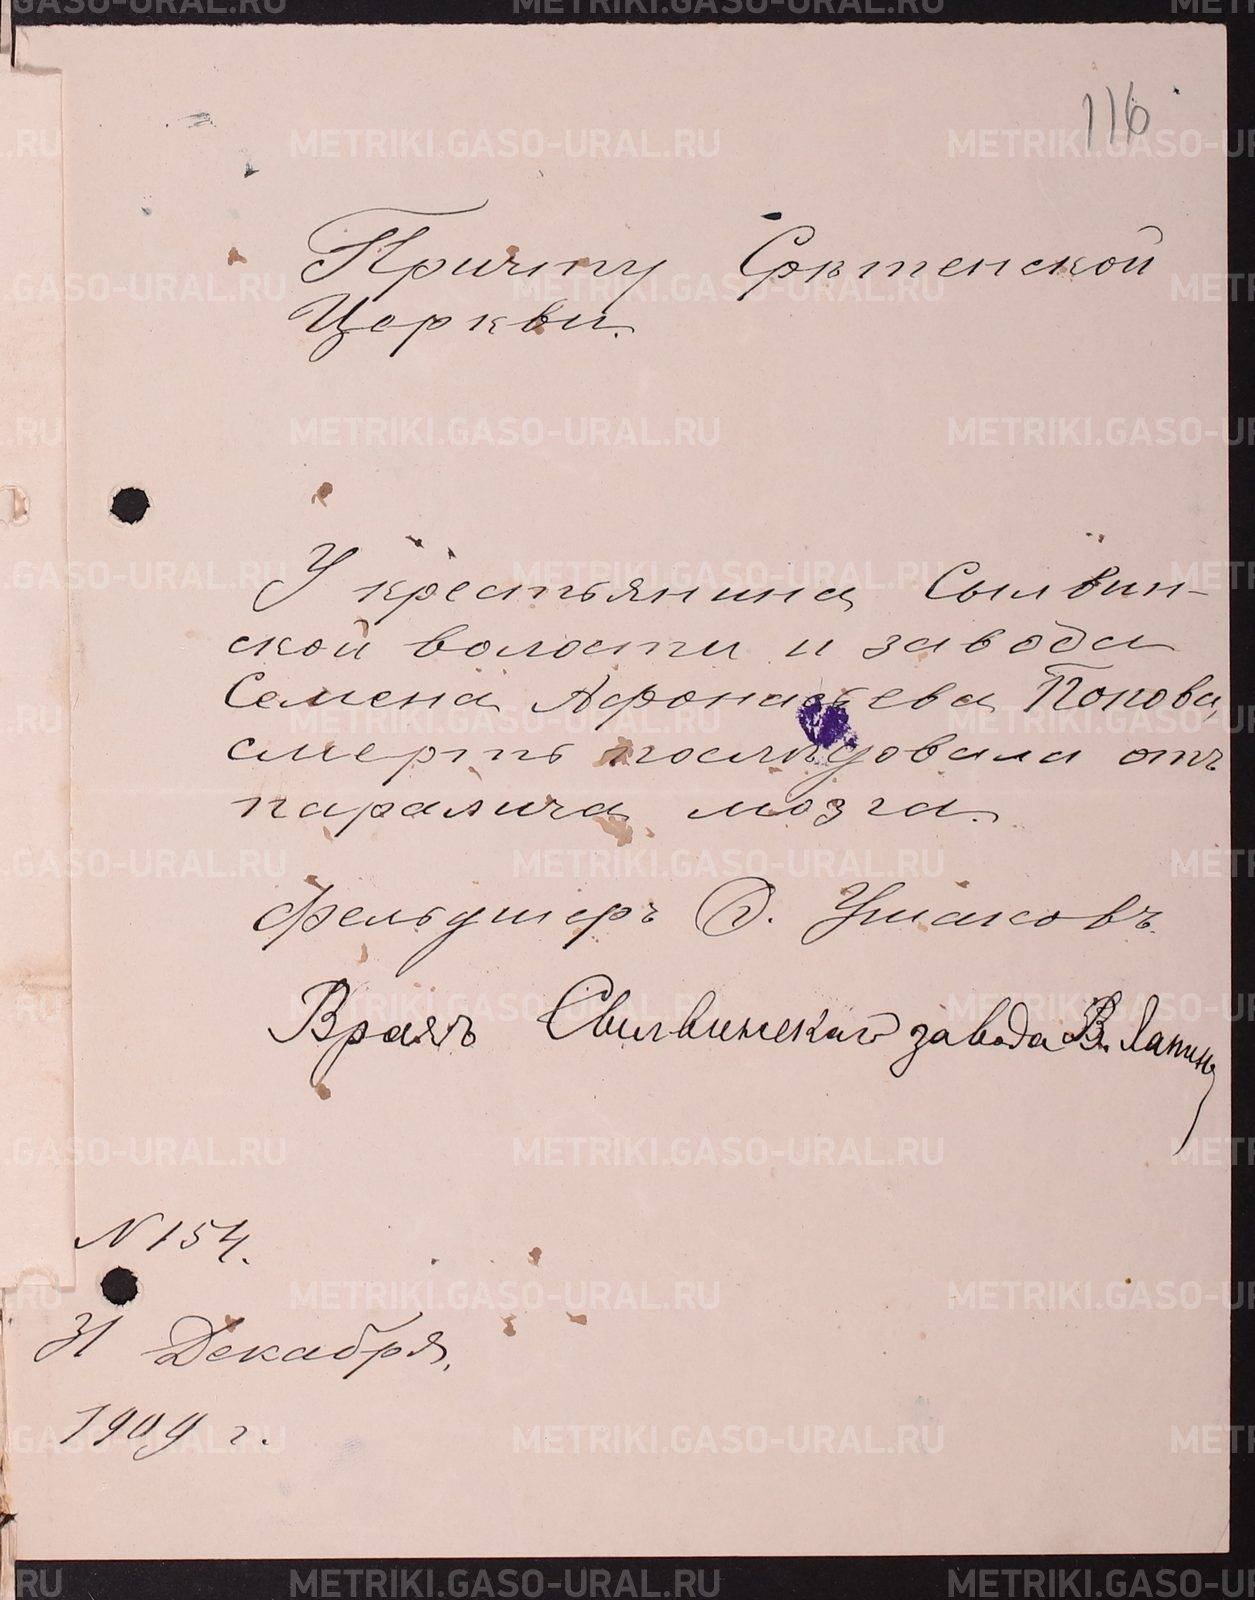 116
Причту Срѣтенской
Церкви.
У крестьянина Сылвин-
ской волости и завода
Семена Афонасьева Попова,
смерть послѣдовала отъ
паралича мозга.
Фельдшеръ Ф. Ушаковъ.
Врачъ Сылвинскаго завода В. Лапинъ
N 154.
31 Декабря,
1909 г.
METRIKI.GASO-URAL.RU